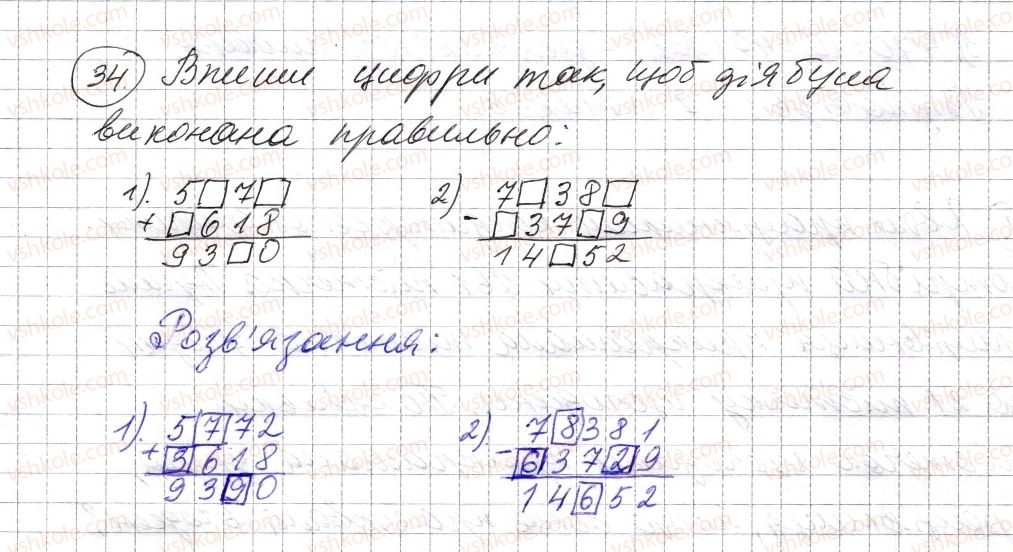 34. Впиши цифри так, щоб дія була
виконана правильно:
1). 5□7□
+ □618
93□0
2) 7□38□
- □37□9
14□52
Розв'язання:
1). 5772
+ 3618
9390
2) 78381
- 63729
14652
vshkole.com